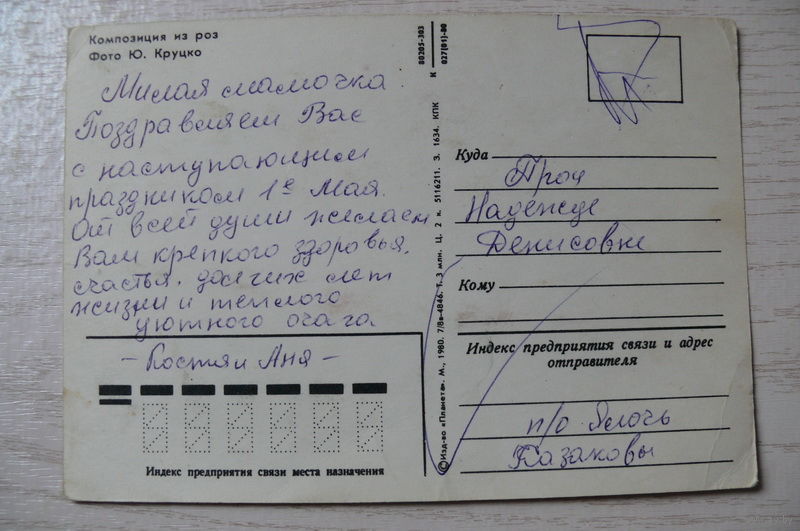 Композиция из роз
Фото Ю. Круцко
Милая мамочка
Поздравляем Вас
с наступающим
праздником 1е Мая.
От всей души желаем
Вам крепкого здоровья,
счастья, долгих лет
жизни и теплого
уютного очага
- Костя и Аня -
Индекс предприятия связи места назначения
80205-303
027(01)-80
К
©Изд-во «Планета». М., 1980. 7/8а-4846. Т. 3 млн. Ц. 2 к. 5116211. З. 1634. КПК
Куда
Проц
Надежде
Денисовне
Кому
Индекс предприятия связи и адрес
отправителя
п/о
Казаковы